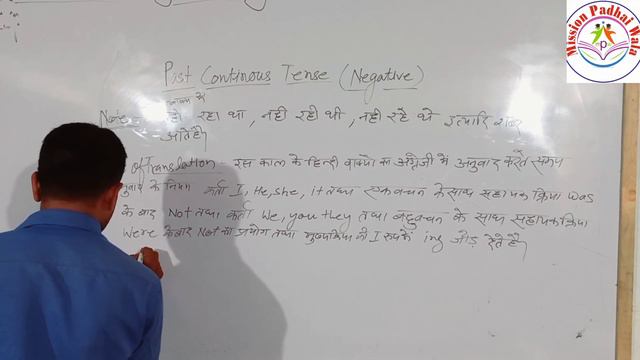 Mission Padhai Wala
Past Continous Tense (Negative)
Note रहा था, नही रही थी, नही रहे थे इत्यादि शब्द
आते है।
of Translation इस काल के हिन्दी वाक्यो का अंग्रेजी मे अनुवाद करते समय
के नियम कर्ता I, He, She, it तथा एकवचन के साथ सहायक क्रिया was
के बाद Not तथा कर्ता We, you they तथा बहुवचन के साथ सहायक क्रिया
Were के बाद Not का प्रयोग तथा मुख्य क्रिया की I रूप में ing जोड़ देते है।